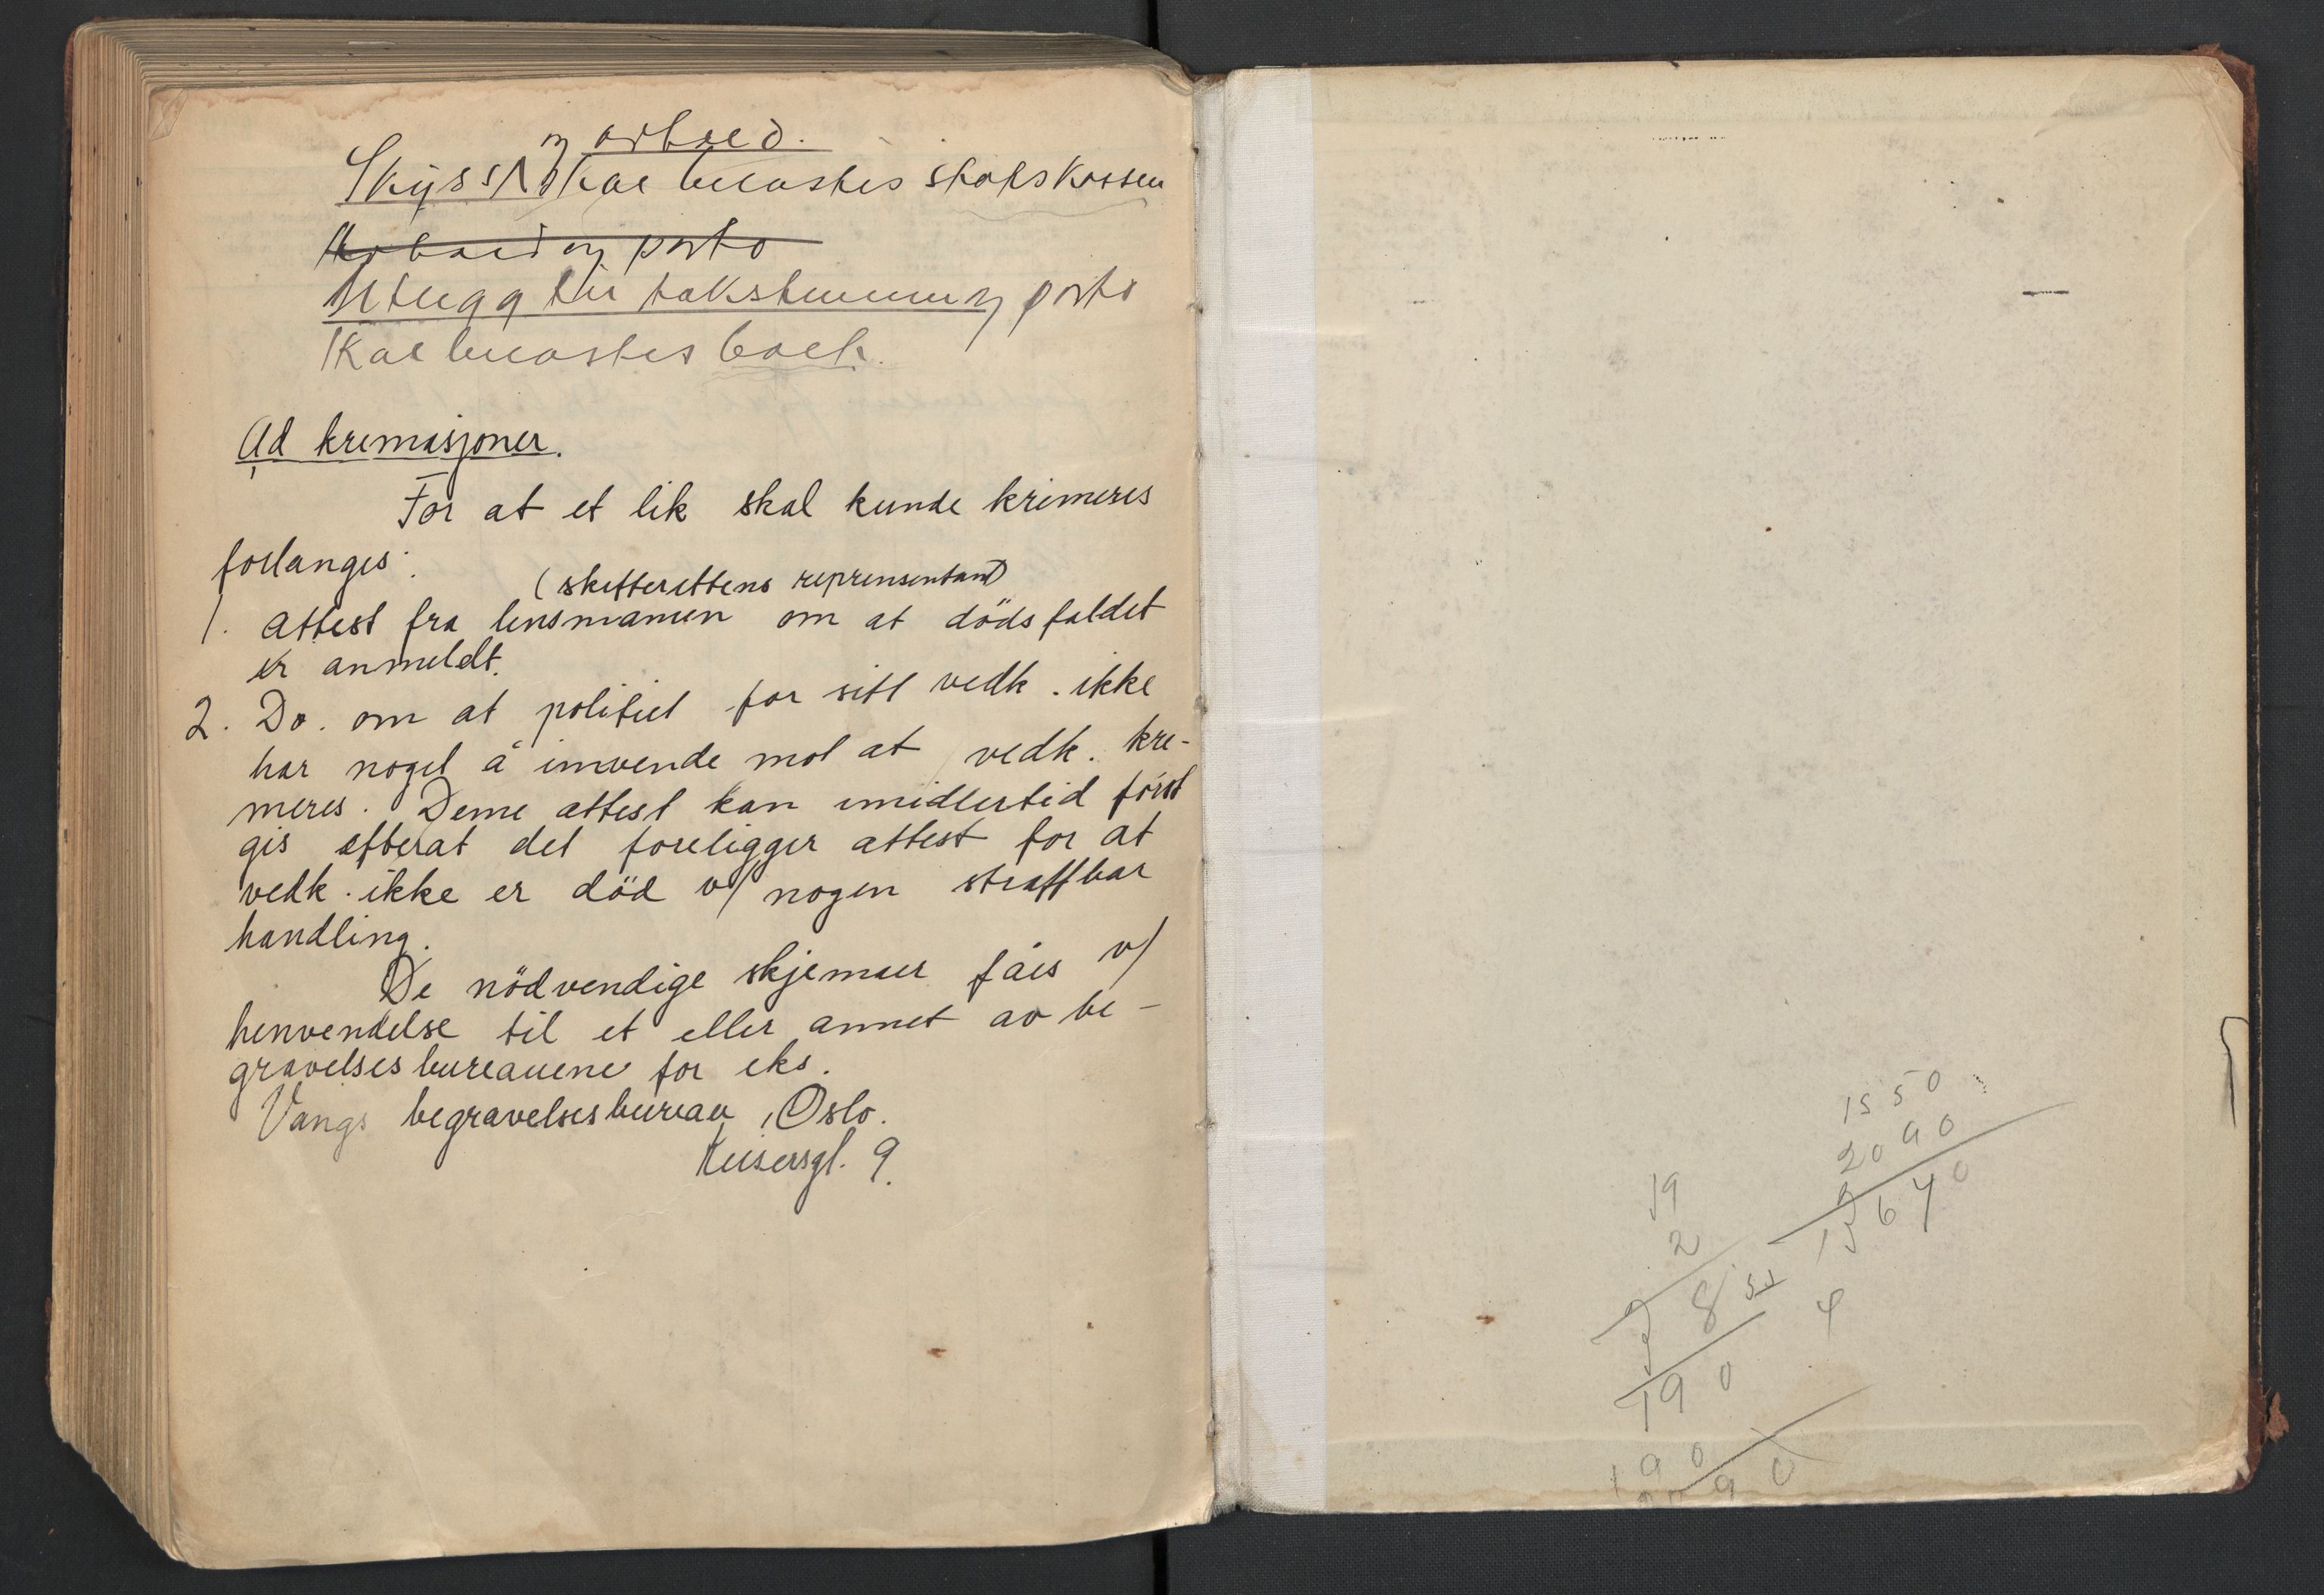 og arbeid.
Skyss skal belastes statskassen
Arbeid og porto
Utlegg til takstmenn og porto
skal belastes boet.
Ad kremasjoner.
For at et lik skal kunde krimeres
forlanges:
(skifterettens reprensentant)
1. Attest fra lensmannen om at dödsfaldet
er anmeldt.
2. Do. om at politiet for sitt vedk. ikke
har noget å innvende mot at vedk. kre-
meres. Denne attest kan imidlertid först
gis efterat det foreligger attest for at
vedk. ikke er död v/ nogen straffbar
handling.
De nödvendige skjemaer fåes v/
henvendelse til et eller annet av be-
gravelsesbureauene for eks.
Vangs begravelsesbureau, Oslo.
Keisersgt. 9.
1550
2090
3640
19
2
38
190
190
2090